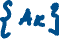 { Ak }